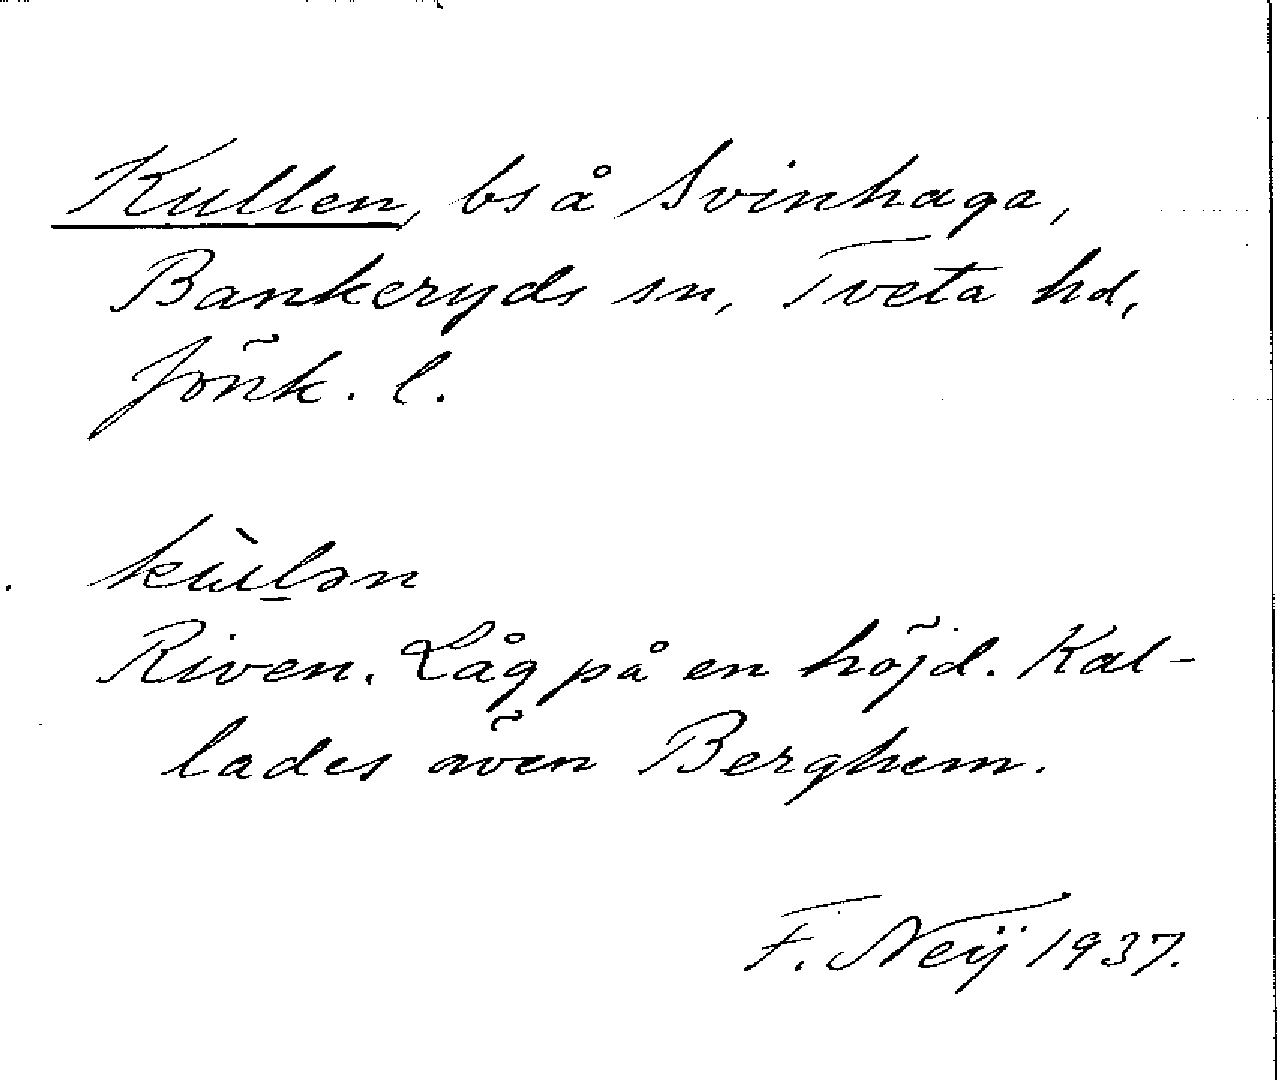 Kullen, bs å Svinhaga,
Bankeryds sn, Tveta hd,
Jönk. l.
kùl̠ən
Riven. Låg på en höjd. Kal-
lades även Berghem.
F. Neij 1937.